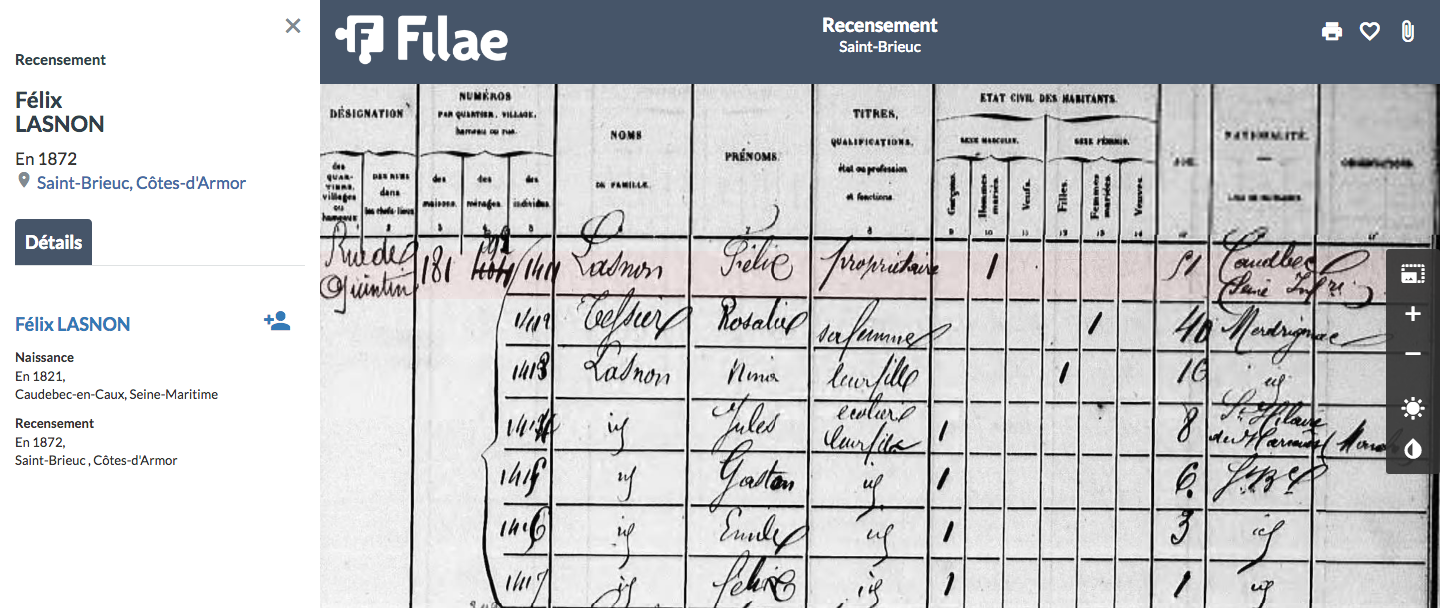 Recensement
Félix
LASNON
En 1872
Saint-Brieuc, Côtes-d'Armor
Détails
Félix LASNON
Naissance
En 1821,
Caudebec-en-Caux, Seine-Maritime
Recensement
En 1872,
Saint-Brieuc , Côtes-d'Armor
Filae
Recensement
Saint-Brieuc
DÉSIGNATION
des QUARTIERS, villages ou hameaux
DES RUES dans les chefs-lieux
NUMÉROS
PAR QUARTIER, VILLAGE,
hameau ou rue.
des maisons.
des ménages.
des individus.
NOMS
DE FAMILLE.
PRÉNOMS.
TITRES,
QUALIFICATIONS,
état ou profession
et fonctions.
ETAT CIVIL DES HABITANTS.
SEXE MASCULIN.
SEXE FÉMININ.
Garçons.
Hommes mariés.
Veufs.
Filles.
Femmes mariées.
Veuves.
NATIONALITÉ.
Rue de Quintin 181 Lasnon Félix propriétaire 1 51 Caudbec
Seine Infre
Tessier Rosalie sa femme 1 40 Merdrignac
Lasnon Nina leur fille 1 16 id
id Jules écolier leur fils 1 8 St Hilaire
id Gaston id 1 6 St Bc
1416 id Emile id 1 3 id
1417 id Félix id 1 1 id